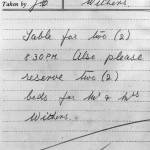 Taken by JB Withens.
Table for two (2)
8.30PM Also, please
reserve two (2)
beds for Mr & Mrs
Withens.